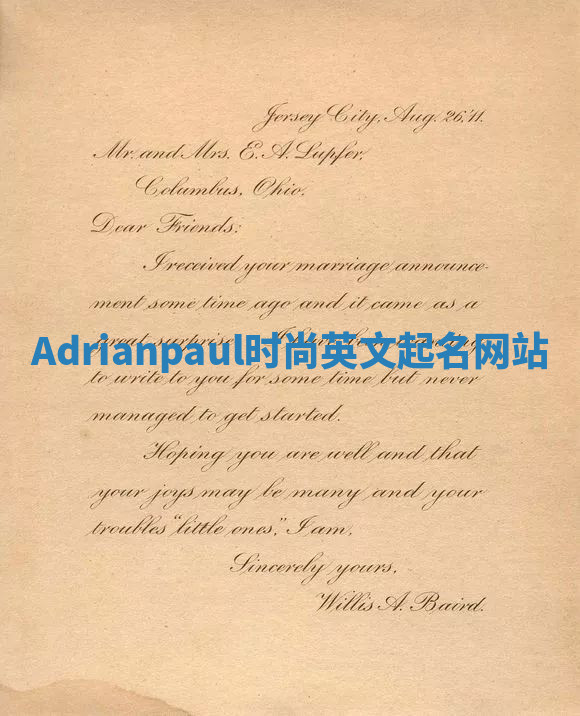 Jersey City, Aug. 26,'11.
Mr. and Mrs. E. A. Lupfer,
Columbus, Ohio.
Dear Friends:
I received your marriage announce-
ment some time ago and it came as a
great surprise
Adrianpaul时尚英文起名网站
to write to you for some time but never
managed to get started.
Hoping you are well and that
your joys may be many and your
troubles "little ones," I am,
Sincerely yours,
Willis A. Baird.